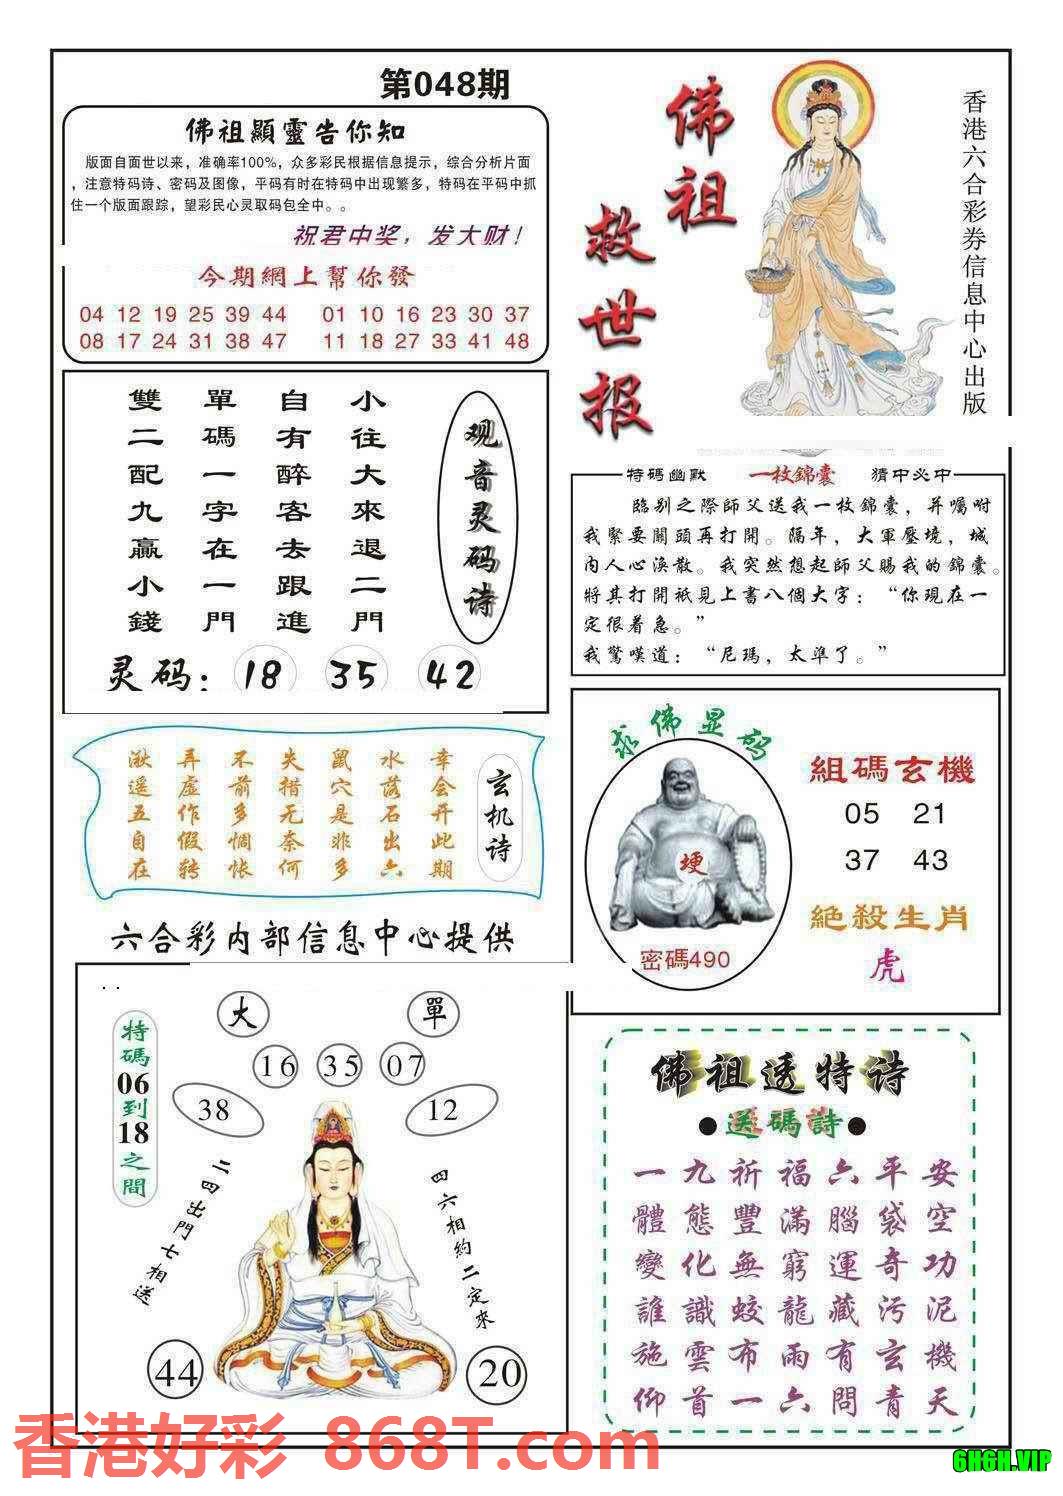 第048期
佛祖顯靈告你知
版面自面世以来，准确率100%，众多彩民根据信息提示，综合分析片面
，注意特码诗、密码及图像，平码有时在特码中出现繁多，特码在平码中抓
住一个版面跟踪，望彩民心灵取码包全中。。
祝君中奖，发大财！
今期網上幫你發
04 12 19 25 39 44 01 10 16 23 30 37
08 17 24 31 38 47 11 18 27 33 41 48
佛祖
救世报
香港六合彩券信息中心出版
观音灵码诗
小往大來退二門
自有醉客去跟進
單碼一字在一門
雙二配九贏小錢
灵码：18 35 42
特碼幽默 一枚錦囊 猜中必中
臨别之際師父送我一枚錦囊，并囑咐
我緊要關頭再打開。隔年，大軍壓境，城
内人心渙散。我突然想起師父賜我的錦囊。
將其打開祇見上書八個大字：“你現在一
定很着急。”
我驚嘆道：“尼瑪，太準了。”
玄机诗
幸会开此期
水落石出六
鼠穴是非多
失措无奈何
不前多惆怅
弄虚作假转
湫遥五自在
求佛显码
埂
密碼490
組碼玄機
05 21
37 43
絕殺生肖
虎
六合彩内部信息中心提供
大 單
16 35 07
38 12
特碼06到18之間
二四出門七相送
四六相約二定來
44 20
佛祖透特诗
●送碼詩●
一九祈福六平安
體態豐滿腦袋空
變化無窮運奇功
誰識蛟龍藏污泥
施雲布雨有玄機
仰首一六問青天
香港好彩 868T.com
6H6H.VIP